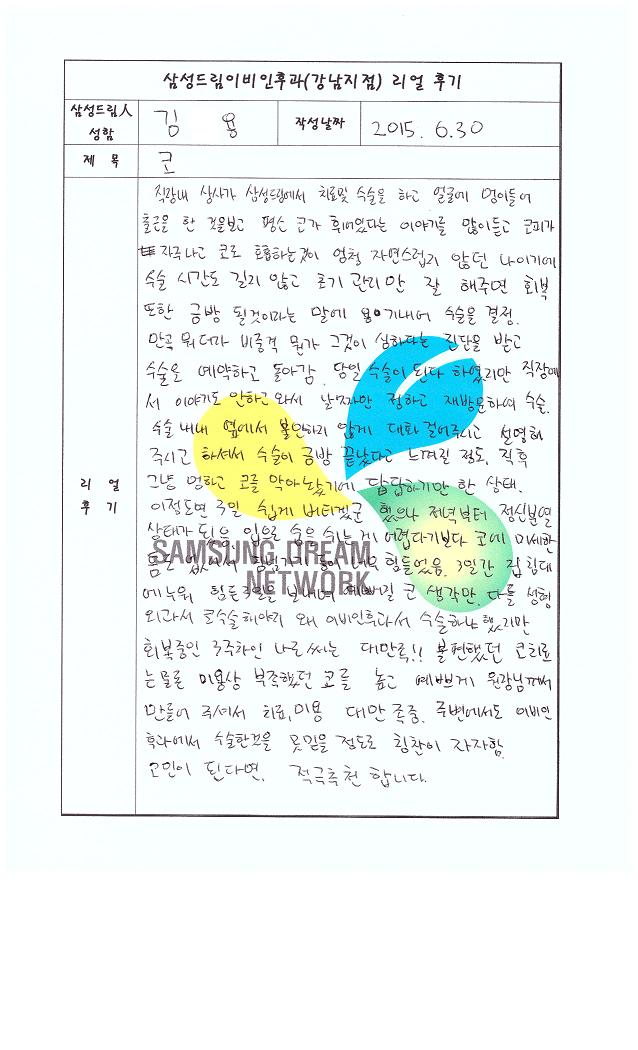 삼성드림이비인후과(강남지점) 리얼 후기
삼성드림人 성함
김 용
작성날짜
2015. 6. 30
제 목
코
리 얼 후 기
직장내 상사가 삼성드림에서 치료및 수술을 하고 얼굴에 멍이들어
출근을 한 것을보고 평소 코가 휘어있다는 이야기를 많이듣고 코피가
자주나고 코로 호흡하는것이 엄청 자연스럽지 않던 나이기에
수술 시간도 길지 않고 초기 관리만 잘 해주면 회복
또한 금방 될것이라는 말에 용기내어 수술을 결정.
만곡 뭐더라 비중격 뭔가 그것이 심하다는 진단을 받고
수술을 예약하고 돌아감. 당일 수술이 된다 하였지만 직장에
서 이야기도 안하고 와서 날짜만 정하고 재방문하여 수술.
수술 내내 옆에서 불안하지 않게 대화 걸어주시고 설명해
주시고 하셔서 수술이 금방 끝났다고 느껴질 정도. 직후
그냥 멍하고 코를 막아놨기에 답답하기만 한 상태.
이정도면 3일 쉽게 버티겠군 했으나 저녁부터 정신분열
상태가 되음. 입으로 숨을 쉬는게 어렵다기보다 코에 미세한
틈도 없어서 침넘기기 등이 너무 힘들었음. 3일간 집 침대
에 누워 힘든 3일을 보내며 예뻐질 코 생각만. 다들 성형
외과서 코수술해야지 왜 이비인후과서 수술하냐 했지만
회복중인 3주차인 나로써는 대만족!! 불편했던 코치료
는 물론 미용상 부족했던 코를 높고 예쁘게 원장님께서
만들어 주셔서 치료,미용 대만족중. 주변에서도 이비인
후과에서 수술한것을 못믿을 정도로 칭찬이 자자함.
고민이 된다면. 적극추천 합니다.
SAMSUNG DREAM
NETWORK